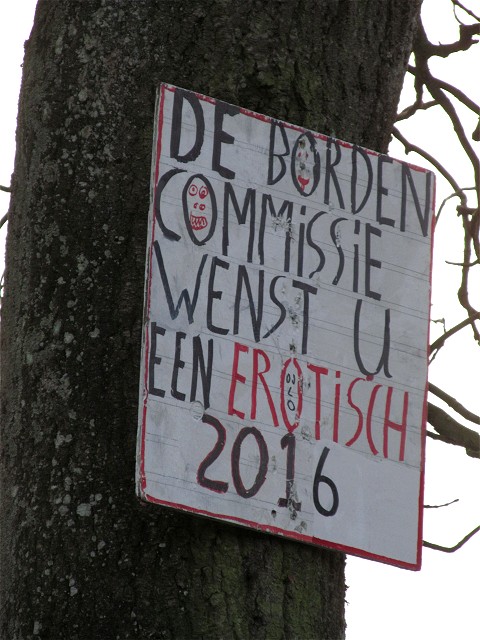 DE BORDEN
COMMISSIE
WENST U
EEN EROTISCH
2016